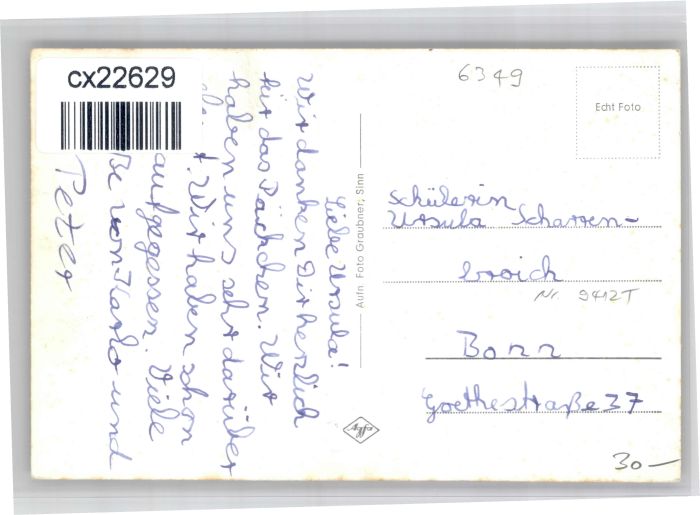 cx22629
6349
Echt Foto
Liebe Ursula!
Wir danken Dir herzlich
für das Päckchen. Wir
haben uns sehr darüber
Wir haben schon
aufgegessen. Viele
von Harlo und
Peter
Aufn. Foto Graubner, Sinn
Schülerin
Ursula Scharren-
broich
Nr. 9412T
Bonn
Goethestraße 37
Agfa
30—